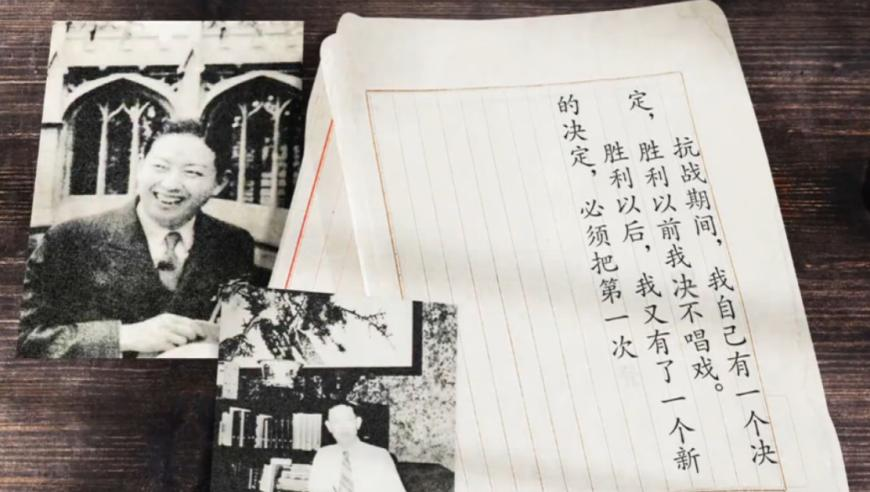 抗战期间，我自己有一个决
定，胜利以前我决不唱戏。
胜利以后，我又有了一个新
的决定，必须把第一次